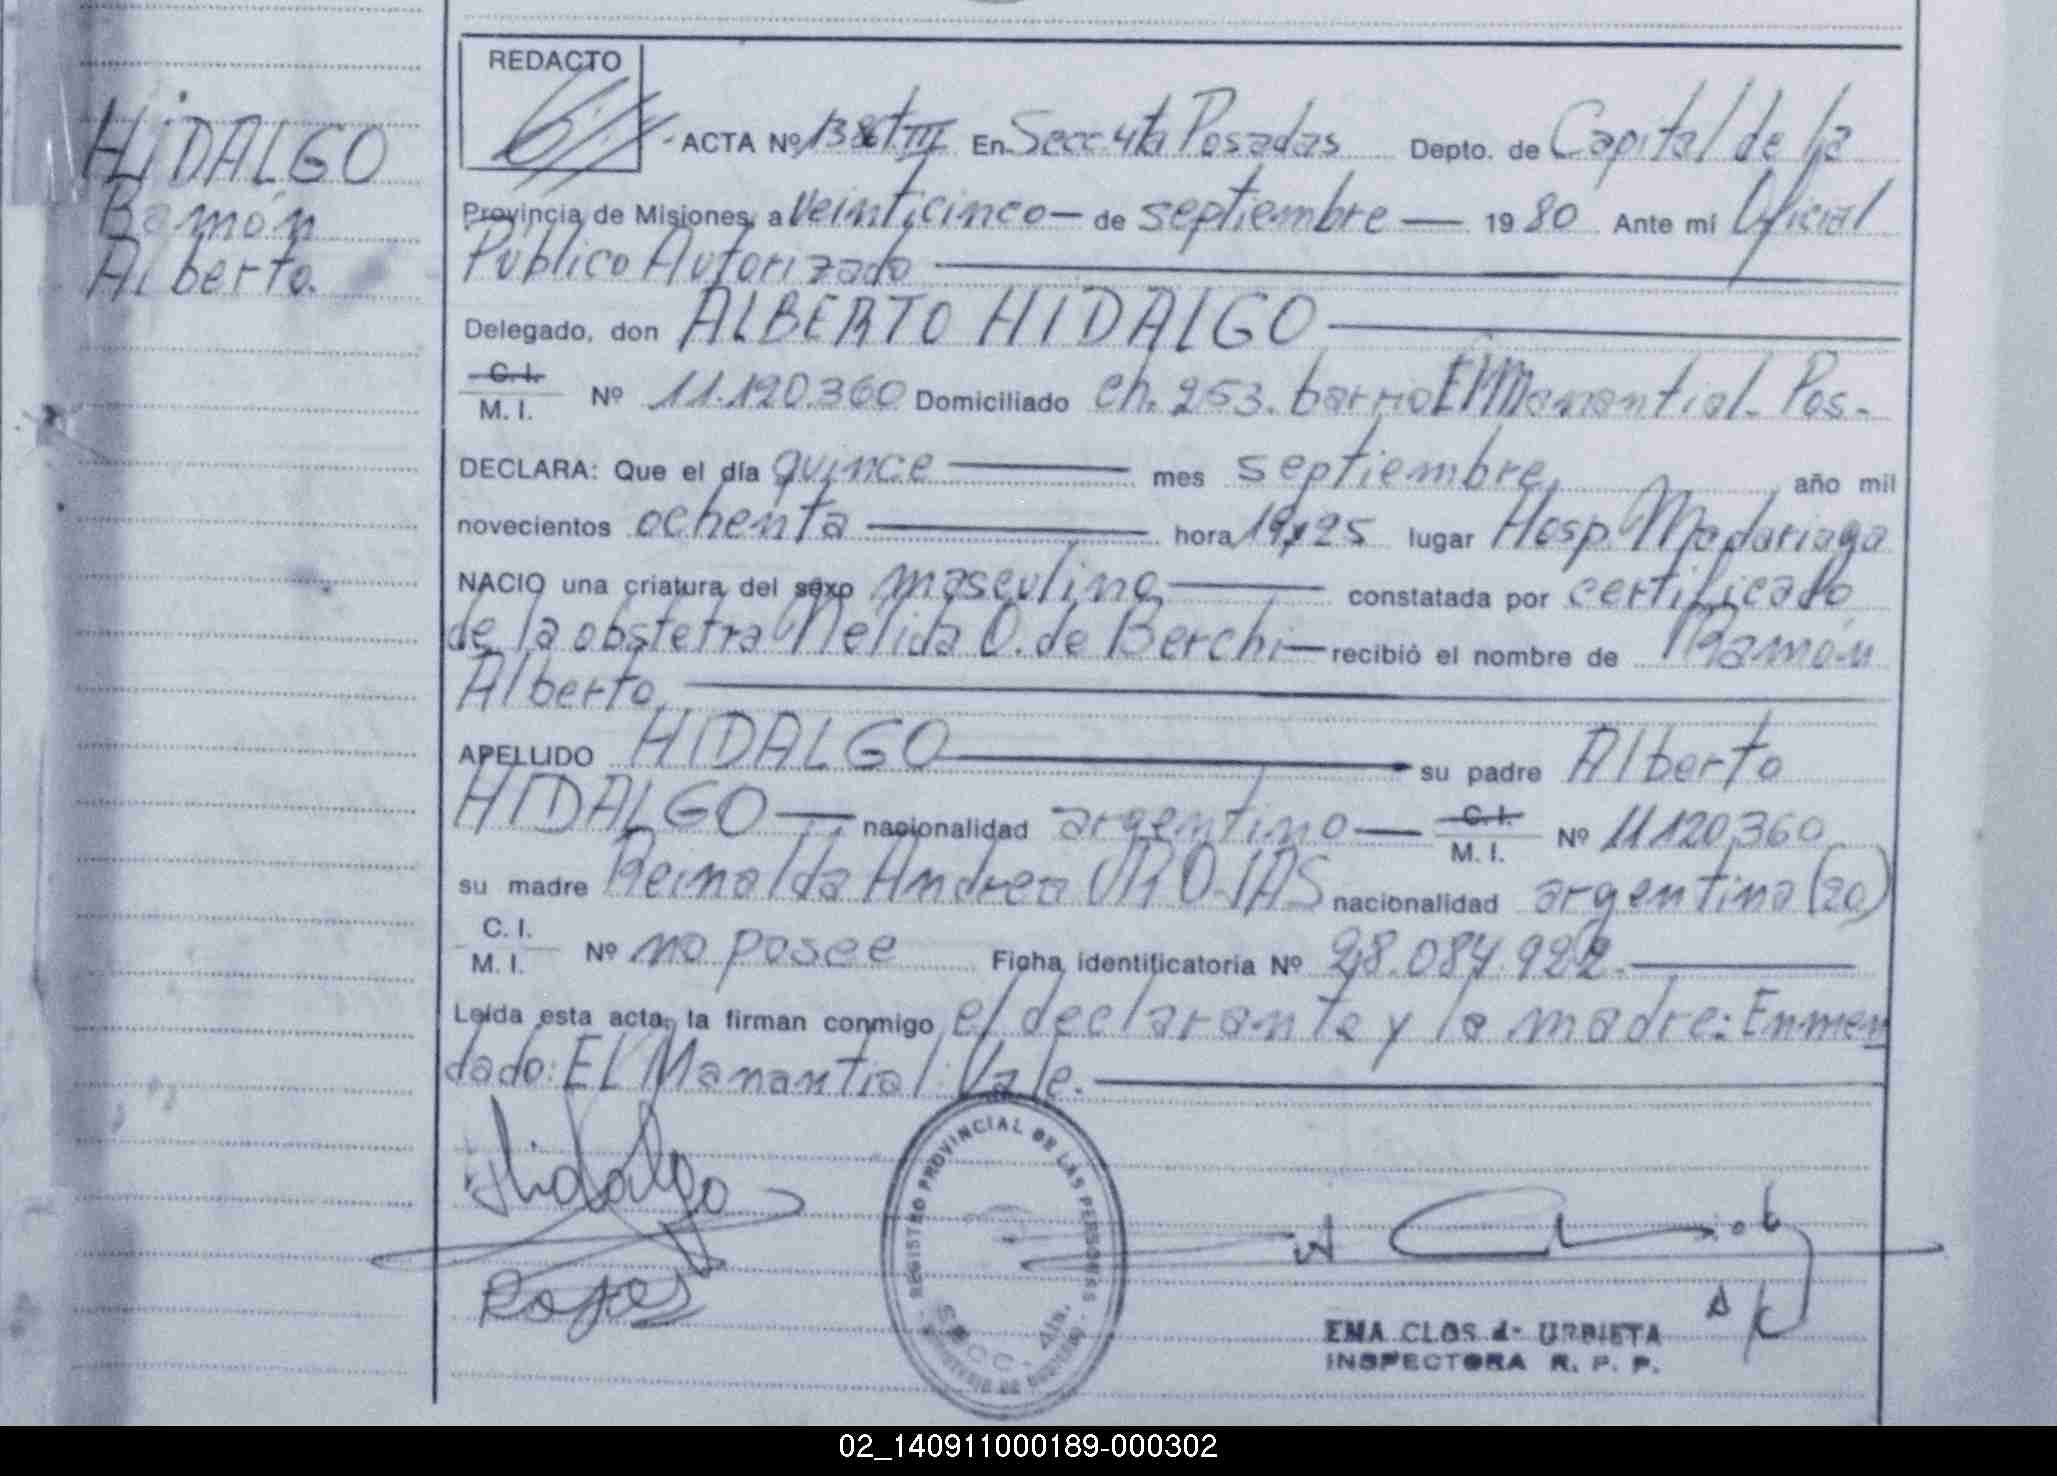 REDACTO
HIDALGO
Ramón
Alberto.
ACTA Nº 1386 t III En Secc 4ta Posadas Depto. de Capital de la
Provincia de Misiones, a veinticinco — de septiembre — 19 80 Ante mi Oficial
Público Autorizado
Delegado, don ALBERTO HIDALGO
C. I.
M. I. Nº 11.120.360 Domiciliado ch. 253. barrio El Manantial. Pos.
DECLARA: Que el día quince — mes septiembre, año mil
novecientos ochenta — hora 19,25 lugar Hosp. Madariaga
NACIO una criatura del sexo masculino — constatada por certificado
de la obstetra Nelida O. de Berchi — recibió el nombre de Ramón
Alberto.
APELLIDO HIDALGO — su padre Alberto
HIDALGO — nacionalidad argentino — C. I. M. I. Nº 11120360
su madre Reinalda Andrea ROJAS nacionalidad argentina (20)
C. I.
M. I. Nº no posee Ficha identificatoria Nº 28.084.922. —
Leída esta acta, la firman conmigo el declarante y la madre: Enmen
dado: EL Manantial: Vale. —
Hidalgo
Rojas
REGISTRO PROVINCIAL DE LAS PERSONAS
EMA CLOS de URRIETA
INSPECTORA R. P. P.
02_140911000189-000302